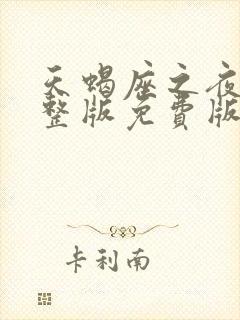 天蝎座之夜
整版免费版
卡利南